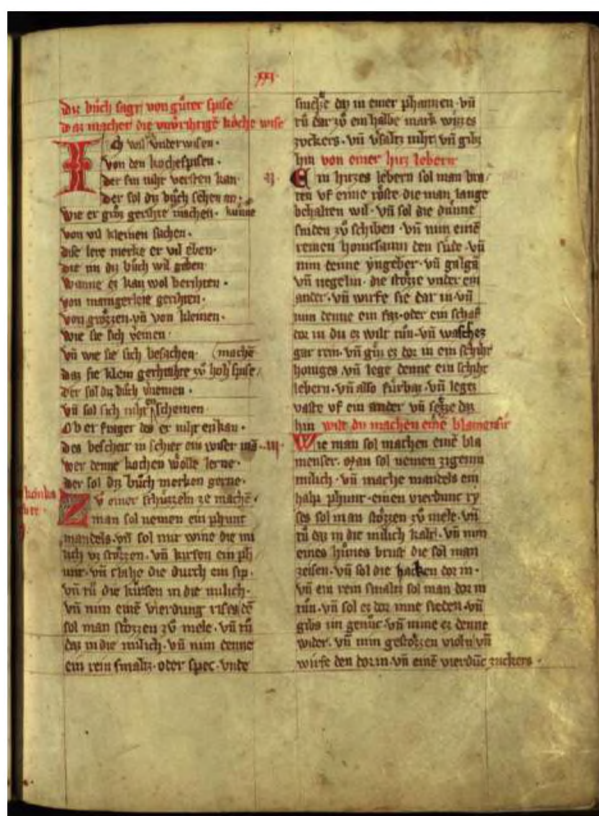 .xxi.
Diz buͦch sagt von guͦter spise
daz machet die vnv̾rihtige koͤche wise
Ich wil vnderwisen ·
von den kochespisen ·
der sin niht versten kan ·
der sol diz buͦch sehen an ·
wie er grͦz gerihte machen · kuͤnne
von vil kleinen sachen ·
dise lere merke er vil eben ·
die im diz buͦch wil geben ·
wanne ez kan wol berihten ·
von mangerleie gerihten ·
von groͤzzen vñ von kleinen ·
wie sie sich v̾einen ·
vñ wie sie sich besachen · (mache
daz sie klein gerihte zv̊ hoh̾ spise /
Der sal diz buch v̾nemen ·
vñ sol sich niht enschemen ·
Ob er fraget des er niht enkan ·
des bescheit in schier ein wiser mā ·
wer denne kochen woͤlle lerne ·
der sol diz buͦch merken gerne ·
Zv einer schuͤzzeln ze machē ·
man sol nemen ein phunt
mandels · vñ sol mit wine die mi
lich vz stozzen · vñ kirsen ein ph
unt · vñ slahe die durch ein sip ·
vñ tuͦ die kirsen in die milich ·
vñ nim einē vierdung rises dē
sol man stozzen zv̊ mele · vñ tuͦ
daz in die milich · vñ nim denne
ein rein smaltz · oder spec · vnde
smeltze daz in einer phannen · vñ
tuͦ dar zv̊ ein halbe mark wizzes
zvckers · vñ v̾saltz niht · vñ gibz
hin von einer hirz lebern
.ij. Ein hirzes lebern sol man bra
ten vf eime roͤste die man lange
behalten wil · vñ sol die duͤnne
sniden zv̊ schiben · vñ nim einē
reinen honicsaim den siude · vñ
nim denne yngeber · vñ galgā
vñ negelin · die stozze vnder ein
ander · vñ wirfe sie dar in · vñ
nim denne ein faz · oder ein schaf
dor in du ez wilt tuͦn · vñ waschez
gar rein · vñ giuͤz ez dor in ein schiht
honiges · vñ lege denne ein schiht
lebern · vñ also fuͤrbaz · vñ legez
vaste vf ein ander vñ setze daz
hin wilt du machen einē blamensir
.iij. Wie man sol machen einē bla
menser · man sol nemen zigenin
milich · vñ mache mandels ein
halp phunt · einen vierdunc ry
ses sol man stozzen zv̊ mele · vñ
tuͦ daz in die milich kalt · vñ nim
eines huͦnes brust die sol man
zeisen · vñ sol die hacken dor in ·
vñ ein rein smaltz sol man dor in
tuͦn · vñ sol ez dor inne sieden · vñ
gibs im genuͦc · vñ nime ez denne
wider · vñ nim gestozzen violn vñ
wirfe den dor in · vñ einē vierduͤc zuckers ·